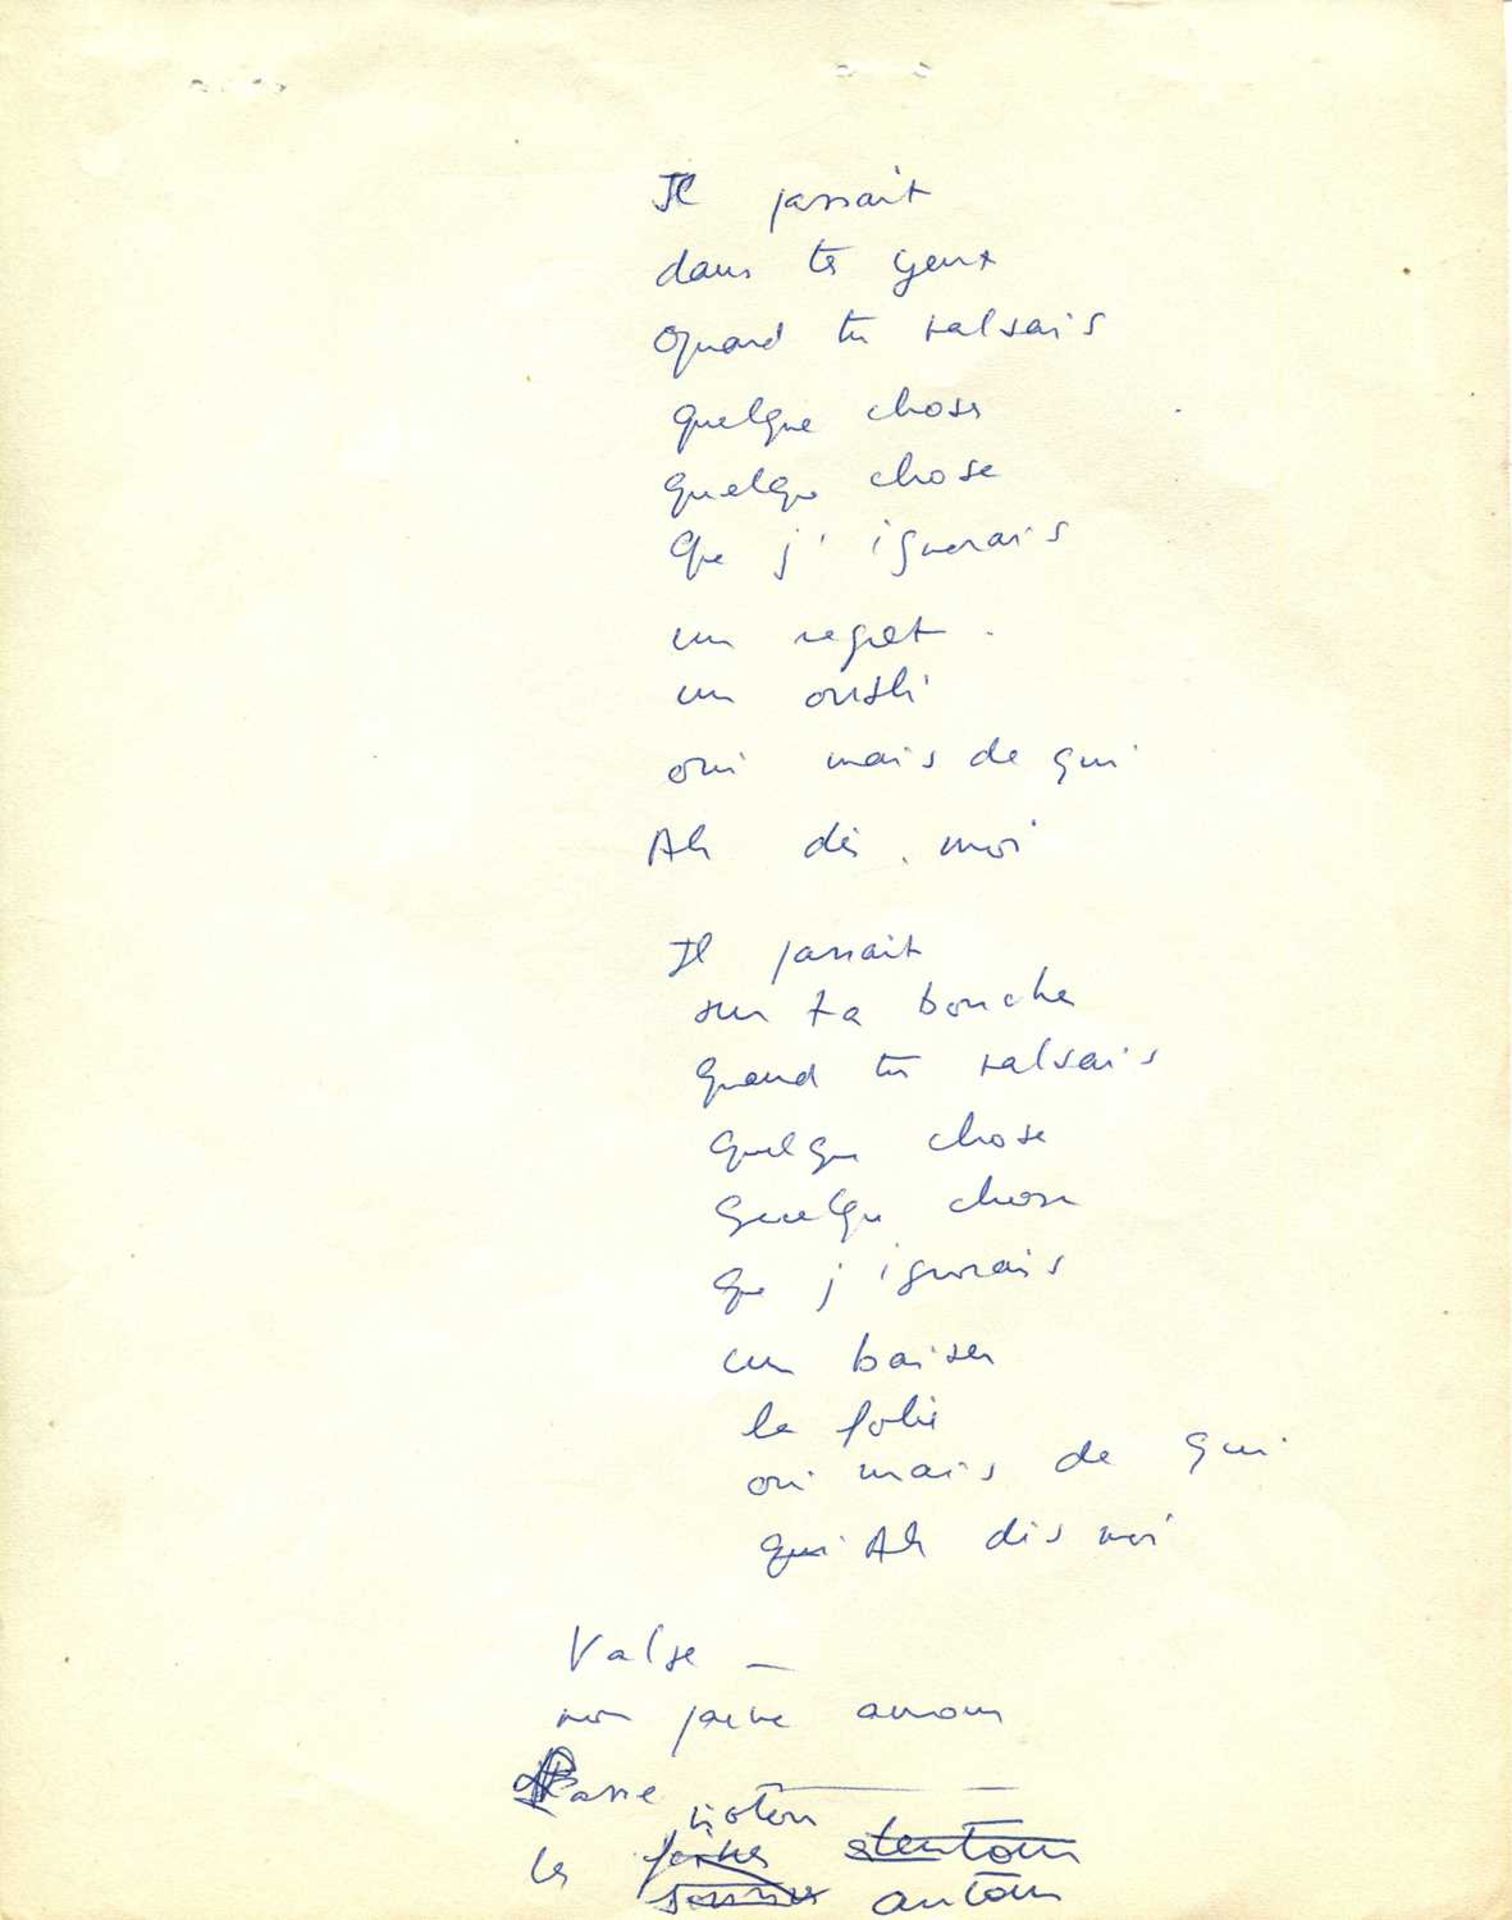 Il passait
dans tes yeux
quand tu valsais
quelque chose
quelque chose
que j'ignorais
un regret
un oubli
oui mais de qui
Ah dis moi
Il passait
sur ta bouche
quand tu valsais
quelque chose
quelque chose
que j'ignorais
un baiser
la folie
oui mais de qui
qui Ah dis moi
Valse —
mon jeune amour
Passe
violons
les
autour